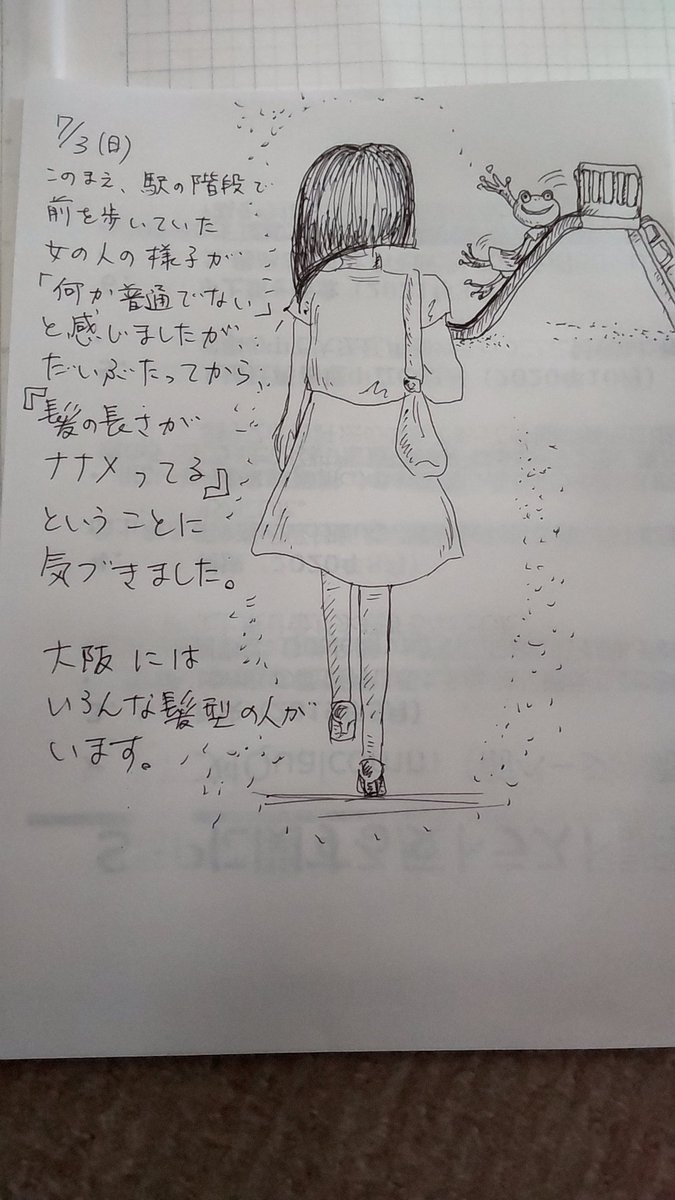 7/3(日)
このまえ、駅の階段で
前を歩いていた
女の人の様子が
「何か普通でない」
と感じましたが
だいぶたってから、
『髪の長さが
ナナメってる』
ということに
気づきました。
大阪には
いろんな髪型の人が
います。